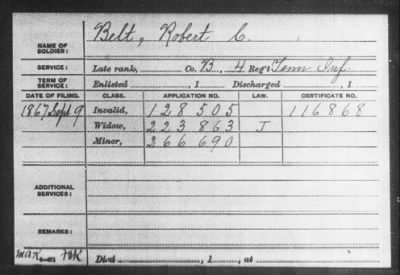 NAME OF SOLDIER: Belt, Robert C.
SERVICE: Late rank, Co. B, 4 Reg't Tenn Inf
TERM OF SERVICE: Enlisted , 1 Discharged , 1
DATE OF FILING. CLASS. APPLICATION NO. LAW. CERTIFICATE NO.
1867 Sept 9 Invalid, 128 505 116868
Widow, 223 863 J
Minor, 266 690
ADDITIONAL SERVICES:
REMARKS:
Died , 1 , at